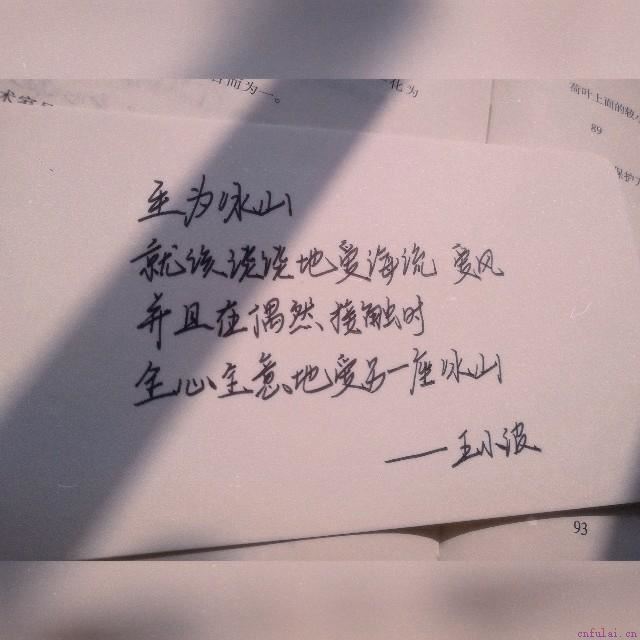 言而为一。
化为
荷叶上面的较
89
保护
至为冰山
就该淡淡地爱海流 爱风
并且在偶然接触时
全心全意地爱另一座冰山
——王小波
93
cnfulai.cn